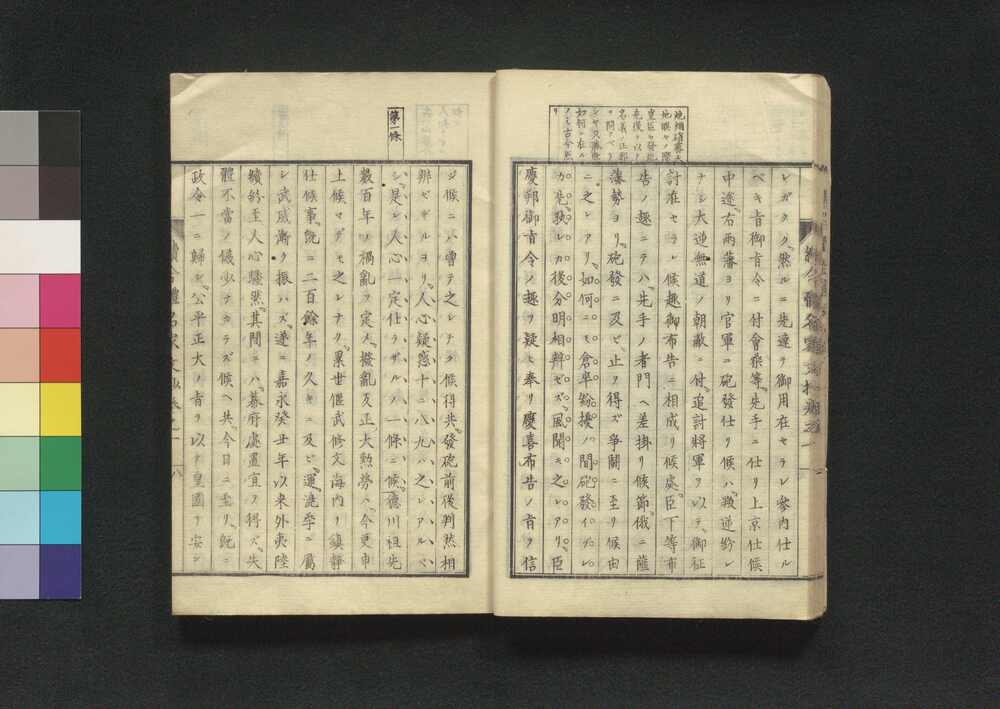 シガタク然ルニ先達テ御用在セラレ參内仕ル
ベキ旨御肯令ニ付會桑等先手ニ仕リ上京仕候
中途右兩藩ヨリ官軍ニ砲發仕リ候ハ叛逆紛レ
ナシ大逆無道ノ朝敵ニ付追討將軍ヲ以テ御征
討在セラレ候趣御布告ニ相成リ候處臣下等布
告ノ趣ニテハ先手ノ者門ヘ差掛リ候節俄ニ薩
藩勢ヨリ砲發ニ及ビ止ヲ得ズ爭鬪ニ至リ候由
ニ之レアリ如何ニモ倉卒紛擾ノ間砲發イヅレ
カ先孰レカ後分明相辨ゼズ風聞モ之レアリ臣
慶邦御肯令ノ趣ヲ疑ヒ奉リ慶喜布告ノ旨ヲ信
ジ候ニハ曾テ之レナク候得共發砲前後判然相
辨ゼザルヨリ人心疑惑十ニ八九ハ之レアルベ
シ是レ人心一定仕ラザルノ一條ニ候
第二條
德川祖先
數百年ノ禍亂ヲ定メ撥亂反正大勲勞ハ今更申
上候マデモ之レナク累世偃武修文海内ヲ鎮靜
仕候事既ニ二百餘年ノ久キニ及ビ運澆季ニ屬
シ武威漸ク振ハズ遂ニ嘉永癸丑年以來外夷陸
續紛至人心騒然其間ニハ幕府處置宜ヲ得ズ失
體不當ノ儀少ナカラズ候ヘ共今日ニ至リ既ニ
政令一ニ歸シ公平正大ノ旨ヲ以テ皇國ヲ安シ